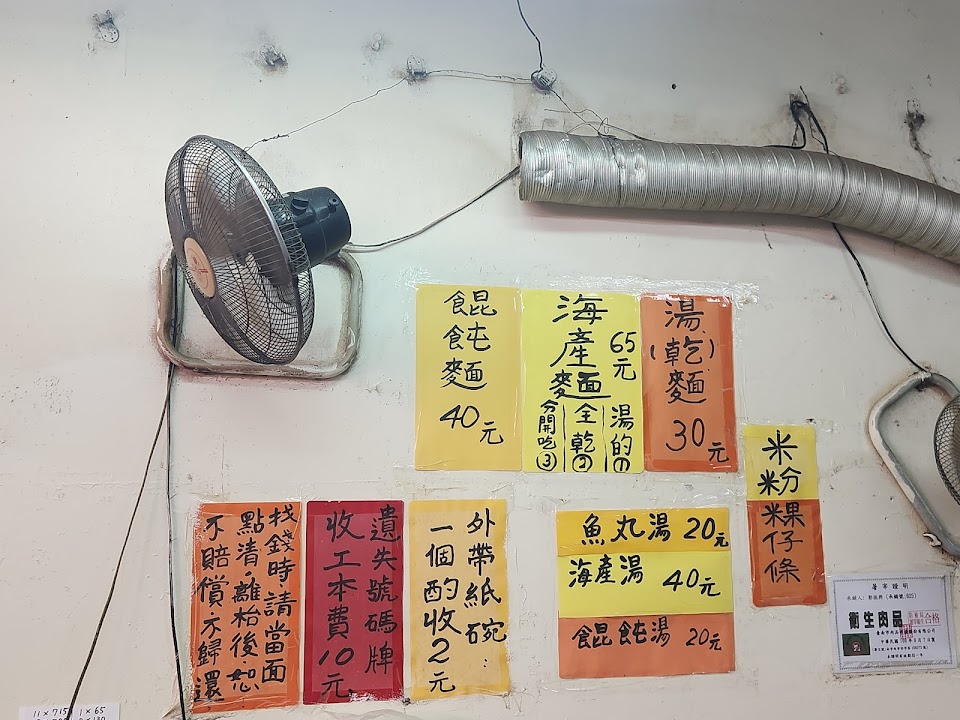 餛飩麵
40元
海產麵
65元
湯的①
全乾②
分開吃③
湯(乾)麵
30元
米粉
粿仔條
找錢時·請當面
點清離枱後·恕
不賠償不歸還
遺失號碼牌
收工本費10元
外帶紙碗:
一個酌收2元
魚丸湯 20元
海產湯 40元
餛飩湯 20元
衛生肉品
合格
11×715 1×65